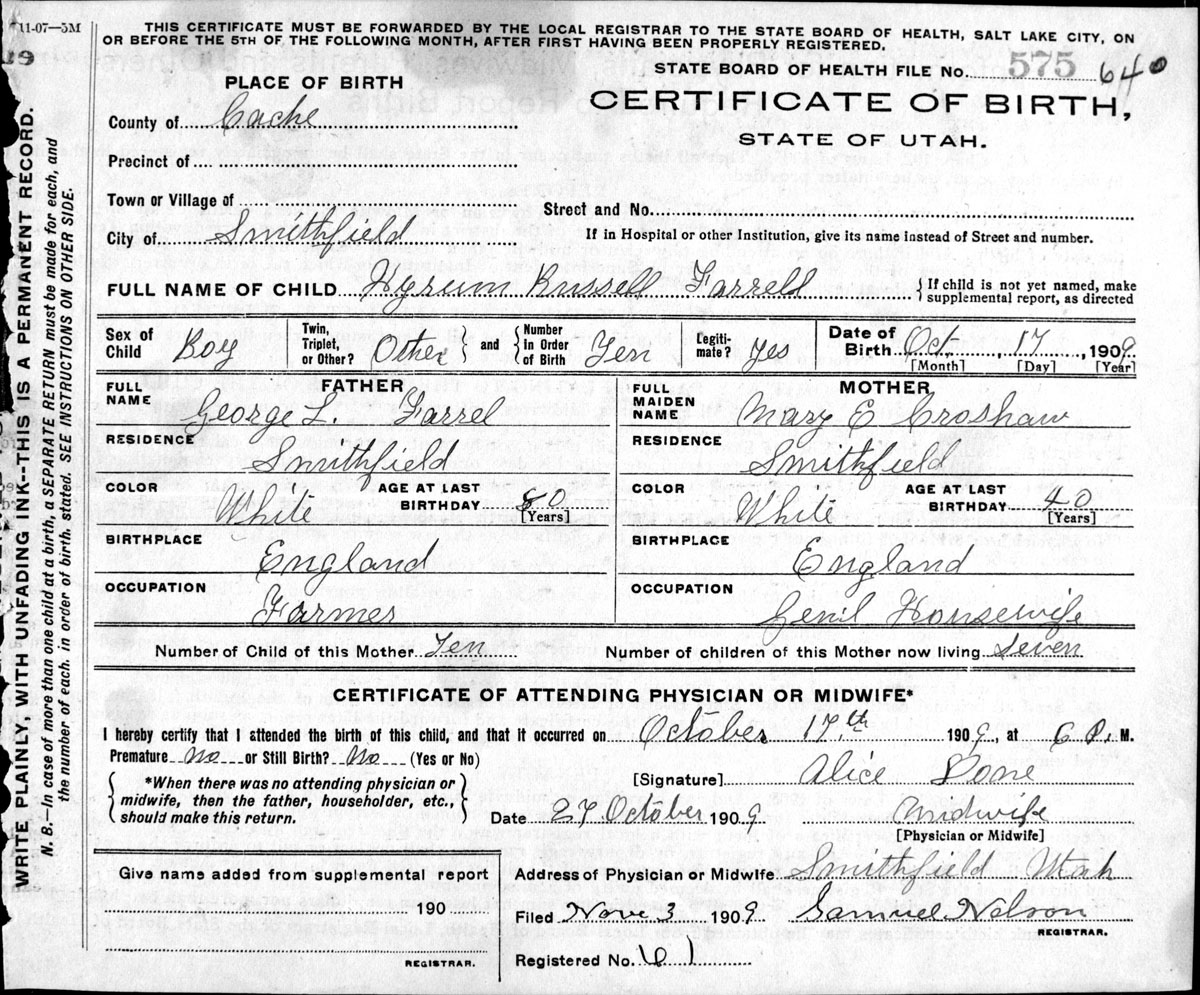 11-07—5M
THIS CERTIFICATE MUST BE FORWARDED BY THE LOCAL REGISTRAR TO THE STATE BOARD OF HEALTH, SALT LAKE CITY, ON
OR BEFORE THE 5TH OF THE FOLLOWING MONTH, AFTER FIRST HAVING BEEN PROPERLY REGISTERED.
STATE BOARD OF HEALTH FILE No. 575 640
PLACE OF BIRTH
CERTIFICATE OF BIRTH,
STATE OF UTAH.
County of Cache
Precinct of
Town or Village of
Street and No.
City of Smithfield
If in Hospital or other Institution, give its name instead of Street and number.
FULL NAME OF CHILD Hyrum Russell Farrell { If child is not yet named, make
supplemental report, as directed
Sex of Child Boy Twin, Triplet, or Other? Other } and { Number in Order of Birth Ten Legiti-mate? Yes Date of Birth Oct. 17, 1909
[Month] [Day] [Year]
FATHER MOTHER
FULL NAME George L. Farrel FULL MAIDEN NAME Mary E Croshaw
RESIDENCE Smithfield RESIDENCE Smithfield
COLOR White AGE AT LAST BIRTHDAY 50 [Years] COLOR White AGE AT LAST BIRTHDAY 40 [Years]
BIRTHPLACE England BIRTHPLACE England
OCCUPATION Farmer OCCUPATION Genil Housewife
Number of Child of this Mother Ten Number of children of this Mother now living Seven
CERTIFICATE OF ATTENDING PHYSICIAN OR MIDWIFE*
I hereby certify that I attended the birth of this child, and that it occurred on October 17th 1909, at 6 P. M.
Premature No or Still Birth? No (Yes or No)
{ *When there was no attending physician or
midwife, then the father, householder, etc.,
should make this return. }
[Signature] Alice Done
Date 27 October 1909 Midwife
[Physician or Midwife]
Give name added from supplemental report
190
REGISTRAR.
Address of Physician or Midwife Smithfield Utah
Filed Nove 3 1909 Samuel Nelson
REGISTRAR.
Registered No. 61
WRITE PLAINLY, WITH UNFADING INK--THIS IS A PERMANENT RECORD.
N. B.—In case of more than one child at a birth, a SEPARATE RETURN must be made for each, and
the number of each, in order of birth, stated. SEE INSTRUCTIONS ON OTHER SIDE.